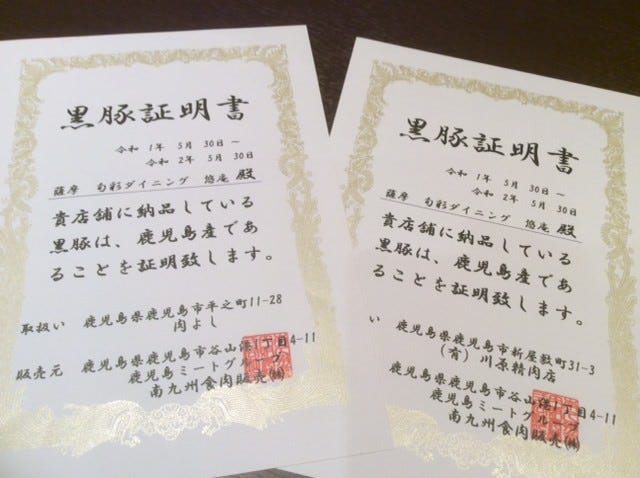 黒豚証明書
令和 1年 5月 30日～
令和 2年 5月 30日
薩摩 旬彩ダイニング 悠庵 殿
貴店舗に納品している
黒豚は、鹿児島産であ
ることを証明致します。
取扱い 鹿児島県鹿児島市平之町11-28
肉よし
販売元 鹿児島県鹿児島市谷山港1丁目4-11
鹿児島ミートグループ
南九州食肉販売㈱
黒豚証明書
令和 1年 5月 30日～
令和 2年 5月 30日
薩摩 旬彩ダイニング 悠庵 殿
貴店舗に納品している
黒豚は、鹿児島産であ
ることを証明致します。
い 鹿児島県鹿児島市新屋敷町31-3
(有) 川原精肉店
鹿児島県鹿児島市谷山港1丁目4-11
鹿児島ミートグループ
南九州食肉販売㈱